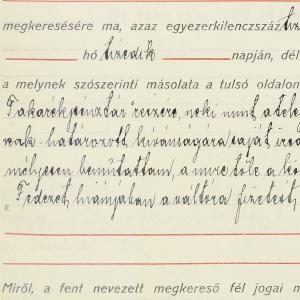 megkeresésére ma, azaz egyezerkilenczszáz tíz
hó tizedik napján, dél
a melynek szószerinti másolata a tulsó oldalon
Takarékpénztár részére, neki mint a tele
nek határozott kívánságára saját iroda
mélyesen bemutattam, a mire tőle a kö
„Fedezet hiányában a váltóra fizetést,
Miről, a fent nevezett megkereső fél jogai m